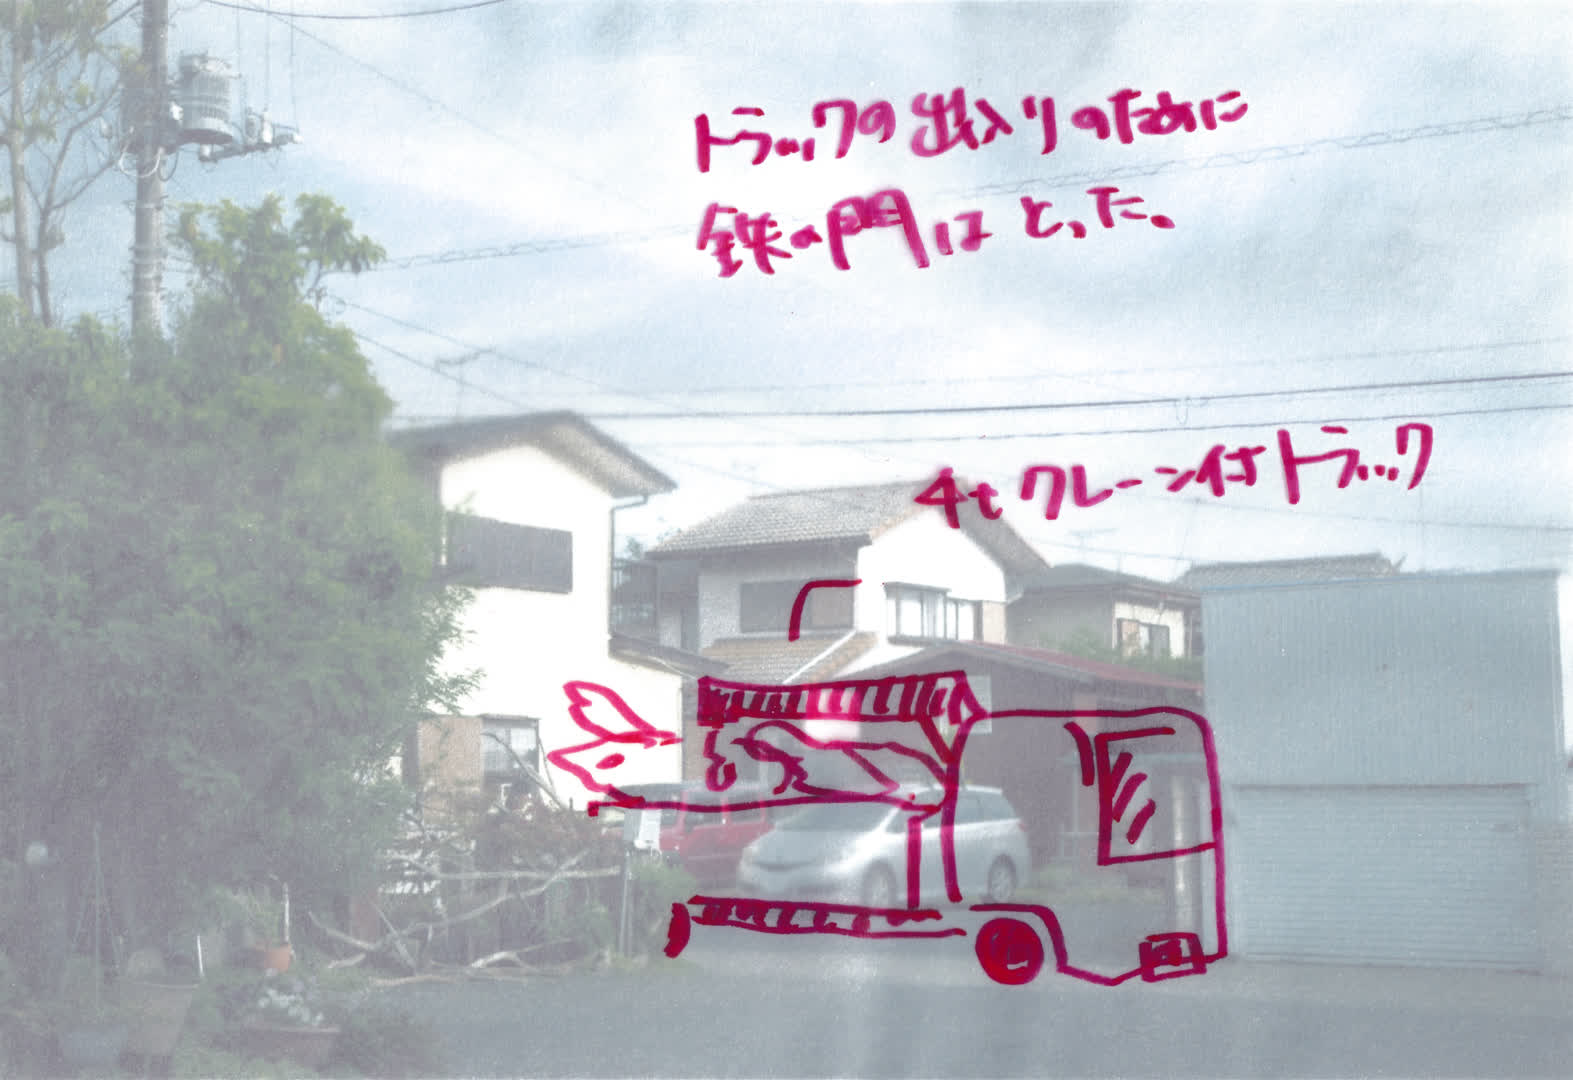 トラックの出入りのために
鉄の門はとった。
4tクレーン付トラック